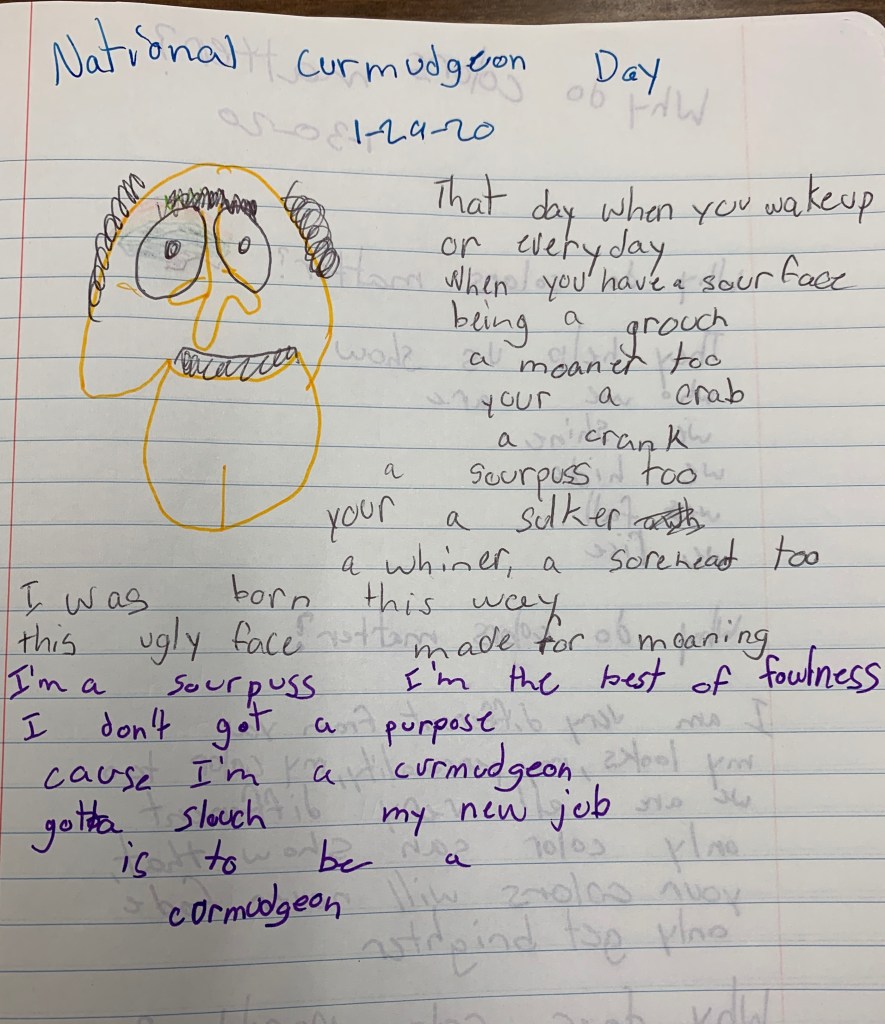 National Curmudgeon Day
1-29-20
That day when you wakeup
or everyday
When you have a sour face
being a grouch
a moaner too
your a crab
a crank
a sourpuss too
your a sulker
a whiner, a sorehead too
I was born this way
this ugly face made for moaning
I'm a sourpuss I'm the best of fowlness
I don't got a purpose
cause I'm a curmudgeon
gotta slouch my new job
is to be a
curmudgeon